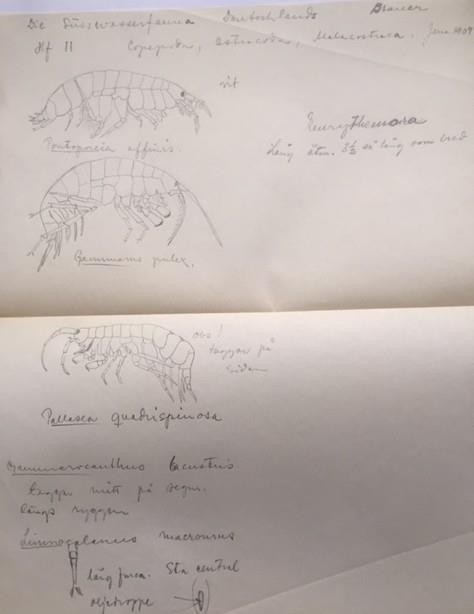 Die Süsswasserfauna Deutschlands Brauer
Hf 11 Copepoda, Ostracoda, Malacostraca. Jena 1909
vit
Pontoporeia affinis.
Eurythemora
Lång 3½ så lång som bred
Gammarus pulex.
obs!
taggar på
sidan
Pallasea quadrispinosa
Gammarocanthus lacustris
taggar mitt på segm.
längs ryggen
Limnocalanus macrurus
lång furca. Sta central
oljedroppe